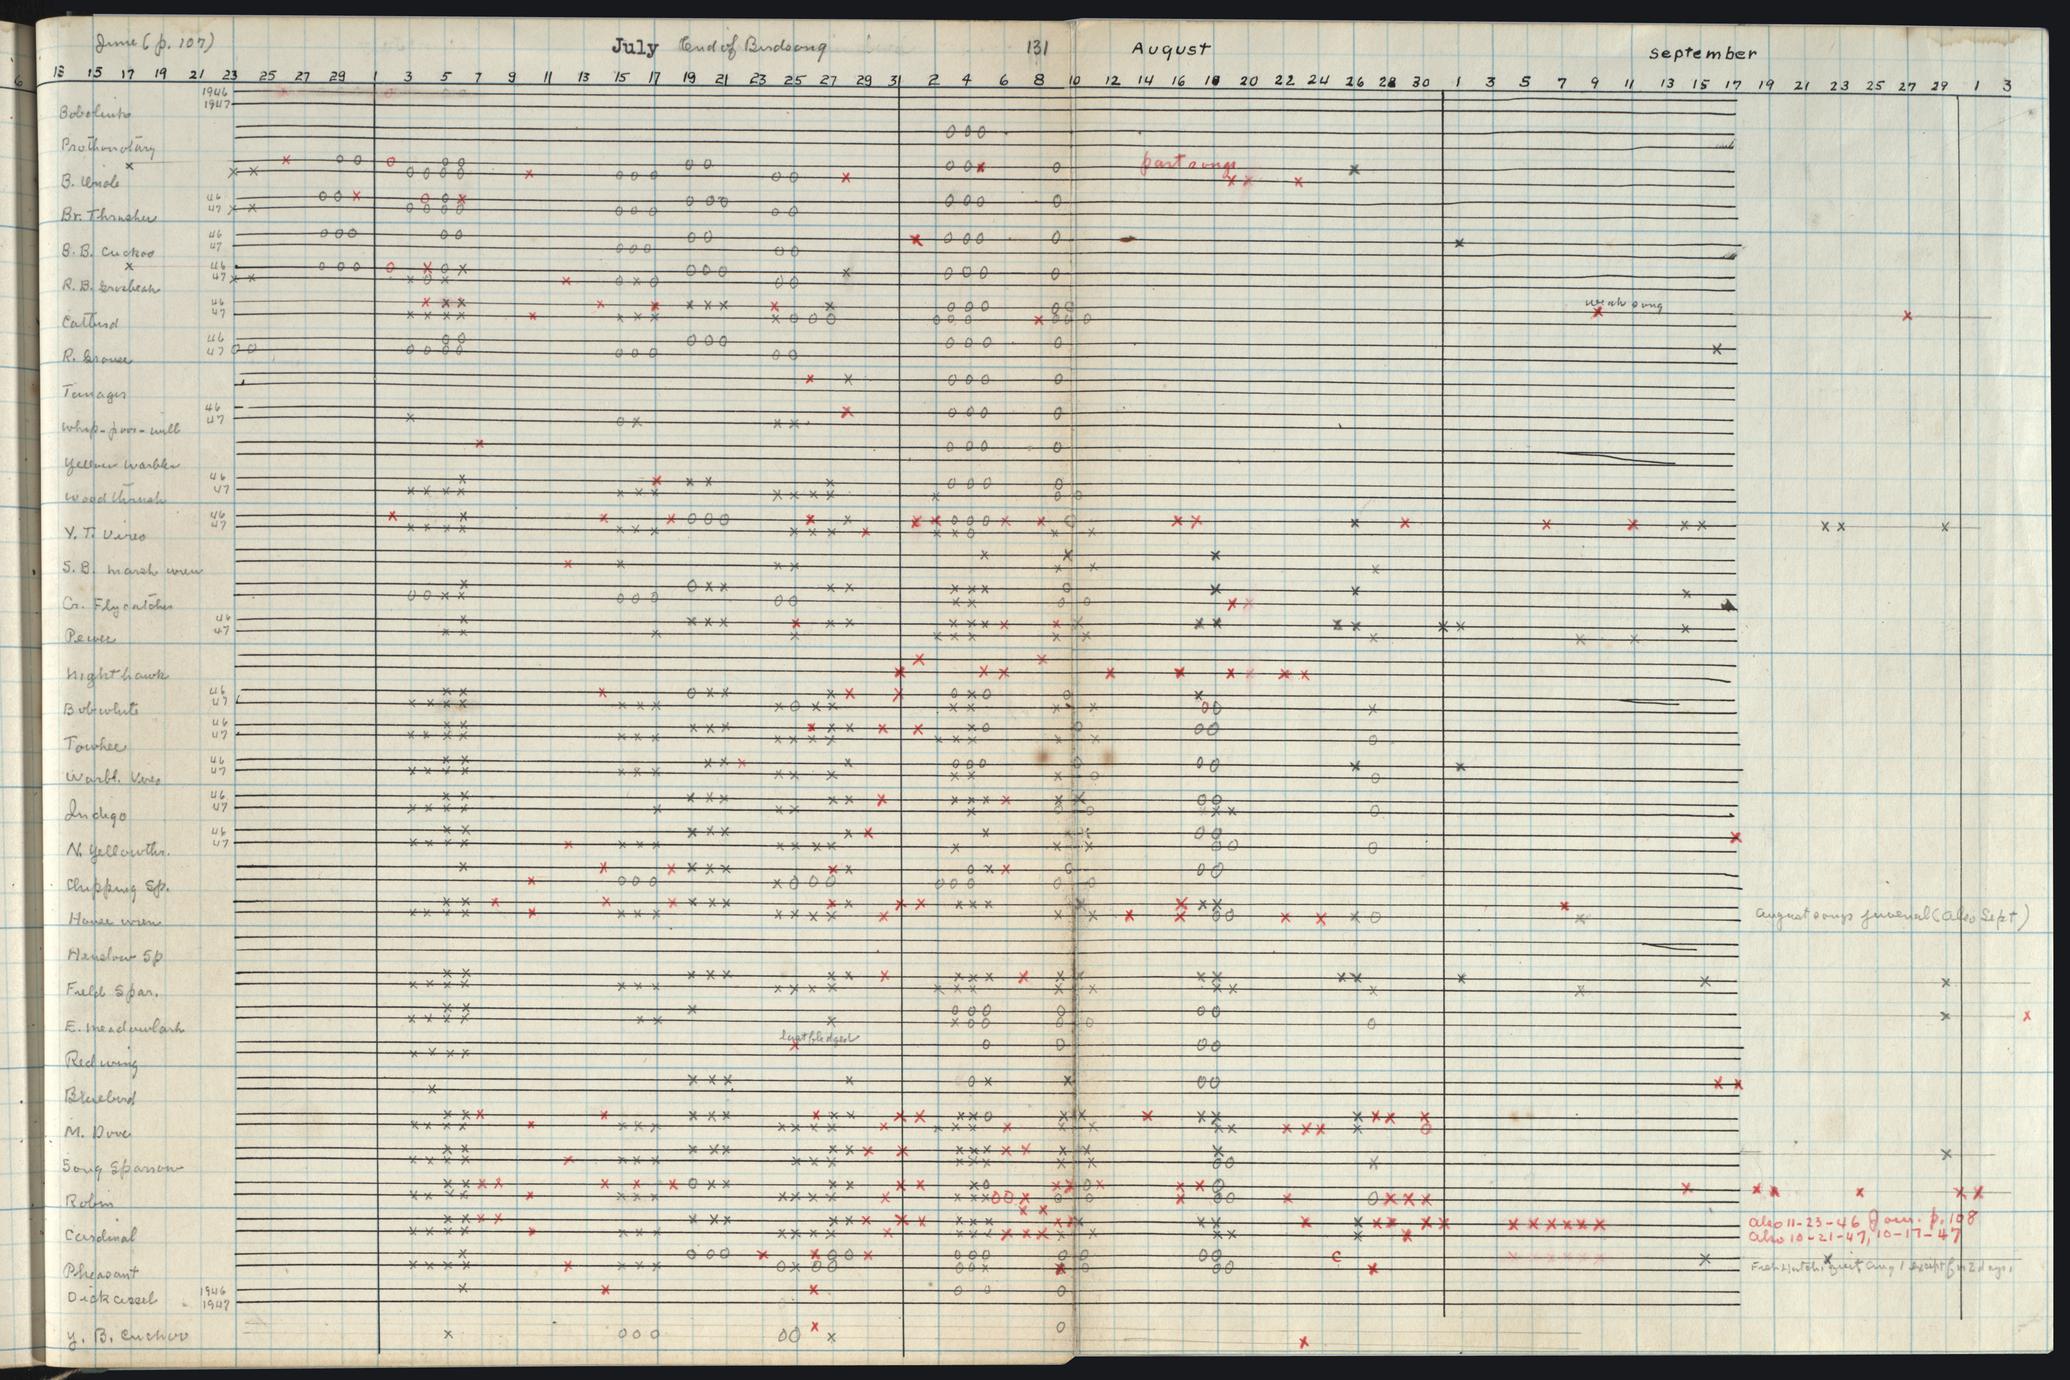 June (p. 107) July End of Birdsong 131 August September
6 13 15 17 19 21 23 25 27 29 1 3 5 7 9 11 13 15 17 19 21 23 25 27 29 31 2 4 6 8 10 12 14 16 18 20 22 24 26 28 30 1 3 5 7 9 11 13 15 17 19 21 23 25 27 29 1 3
1946
1947
Bobolink
Prothonotary
part songs
B. Oriole
46
47
Br. Thrasher
46
47
B. B. Cuckoo
46
47
R. B. Grosbeak
46
47
weak song
Catbird
46
47
R. Grouse
Tanager
46
47
Whip-poor-will
Yellow Warbler
46
47
Wood thrush
46
47
Y. T. Vireo
S. B. marsh wren
Cr. Flycatcher
46
47
Pewee
Nighthawk
46
47
Bobwhite
46
47
Towhee
46
47
Warbl. Vireo
46
47
Indigo
46
47
N. Yellowthr.
Chipping Sp.
House wren
August songs juvenal (also Sept)
Henslow Sp
Field Spar.
E. meadowlark
last fledged
Red wing
Bluebird
M. Dove
Song Sparrow
Robin
Cardinal
also 11-23-46, Jour. p. 108
also 10-21-47, 10-17-47
c
Pheasant
quiet Aug 1 except for 2 days.
Dickcissel
1946
1947
Y. B. Cuckoo